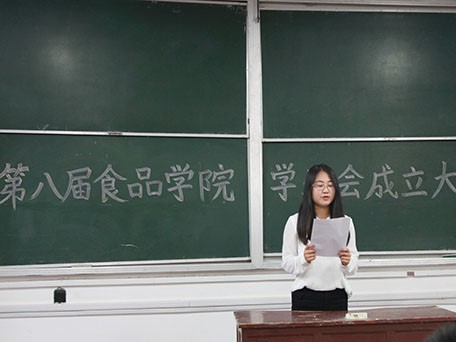 第八届食品学院 学 会成立大